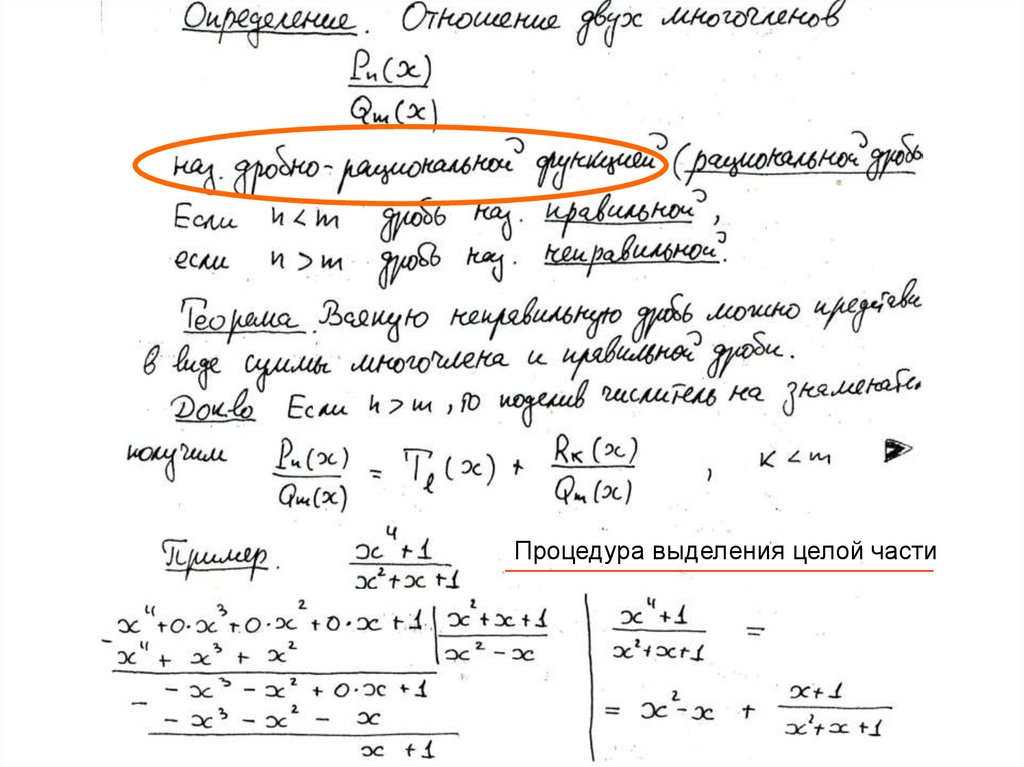 Определение. Отношение двух многочленов
Pn(x)
Qm(x)
наз. дробно-рациональной функцией (рациональной дробь
Если n < m дробь наз. правильной,
если n > m дробь наз. неправильной.
Теорема. Всякую неправильную дробь можно представи
в виде суммы многочлена и правильной дроби.
Док-во Если n > m, то поделив числитель на знаменате
получим Pn(x)/Qm(x) = Tl(x) + Rk(x)/Qm(x), k < m
Пример. x⁴+1/x²+x+1 Процедура выделения целой части
x⁴+0·x³+0·x²+0·x+1 | x²+x+1
- x⁴ + x³ + x² | x² - x
- x³ - x² + 0·x + 1
- - x³ - x² - x
x + 1
x⁴+1/x²+x+1 =
= x² - x + x+1/x²+x+1